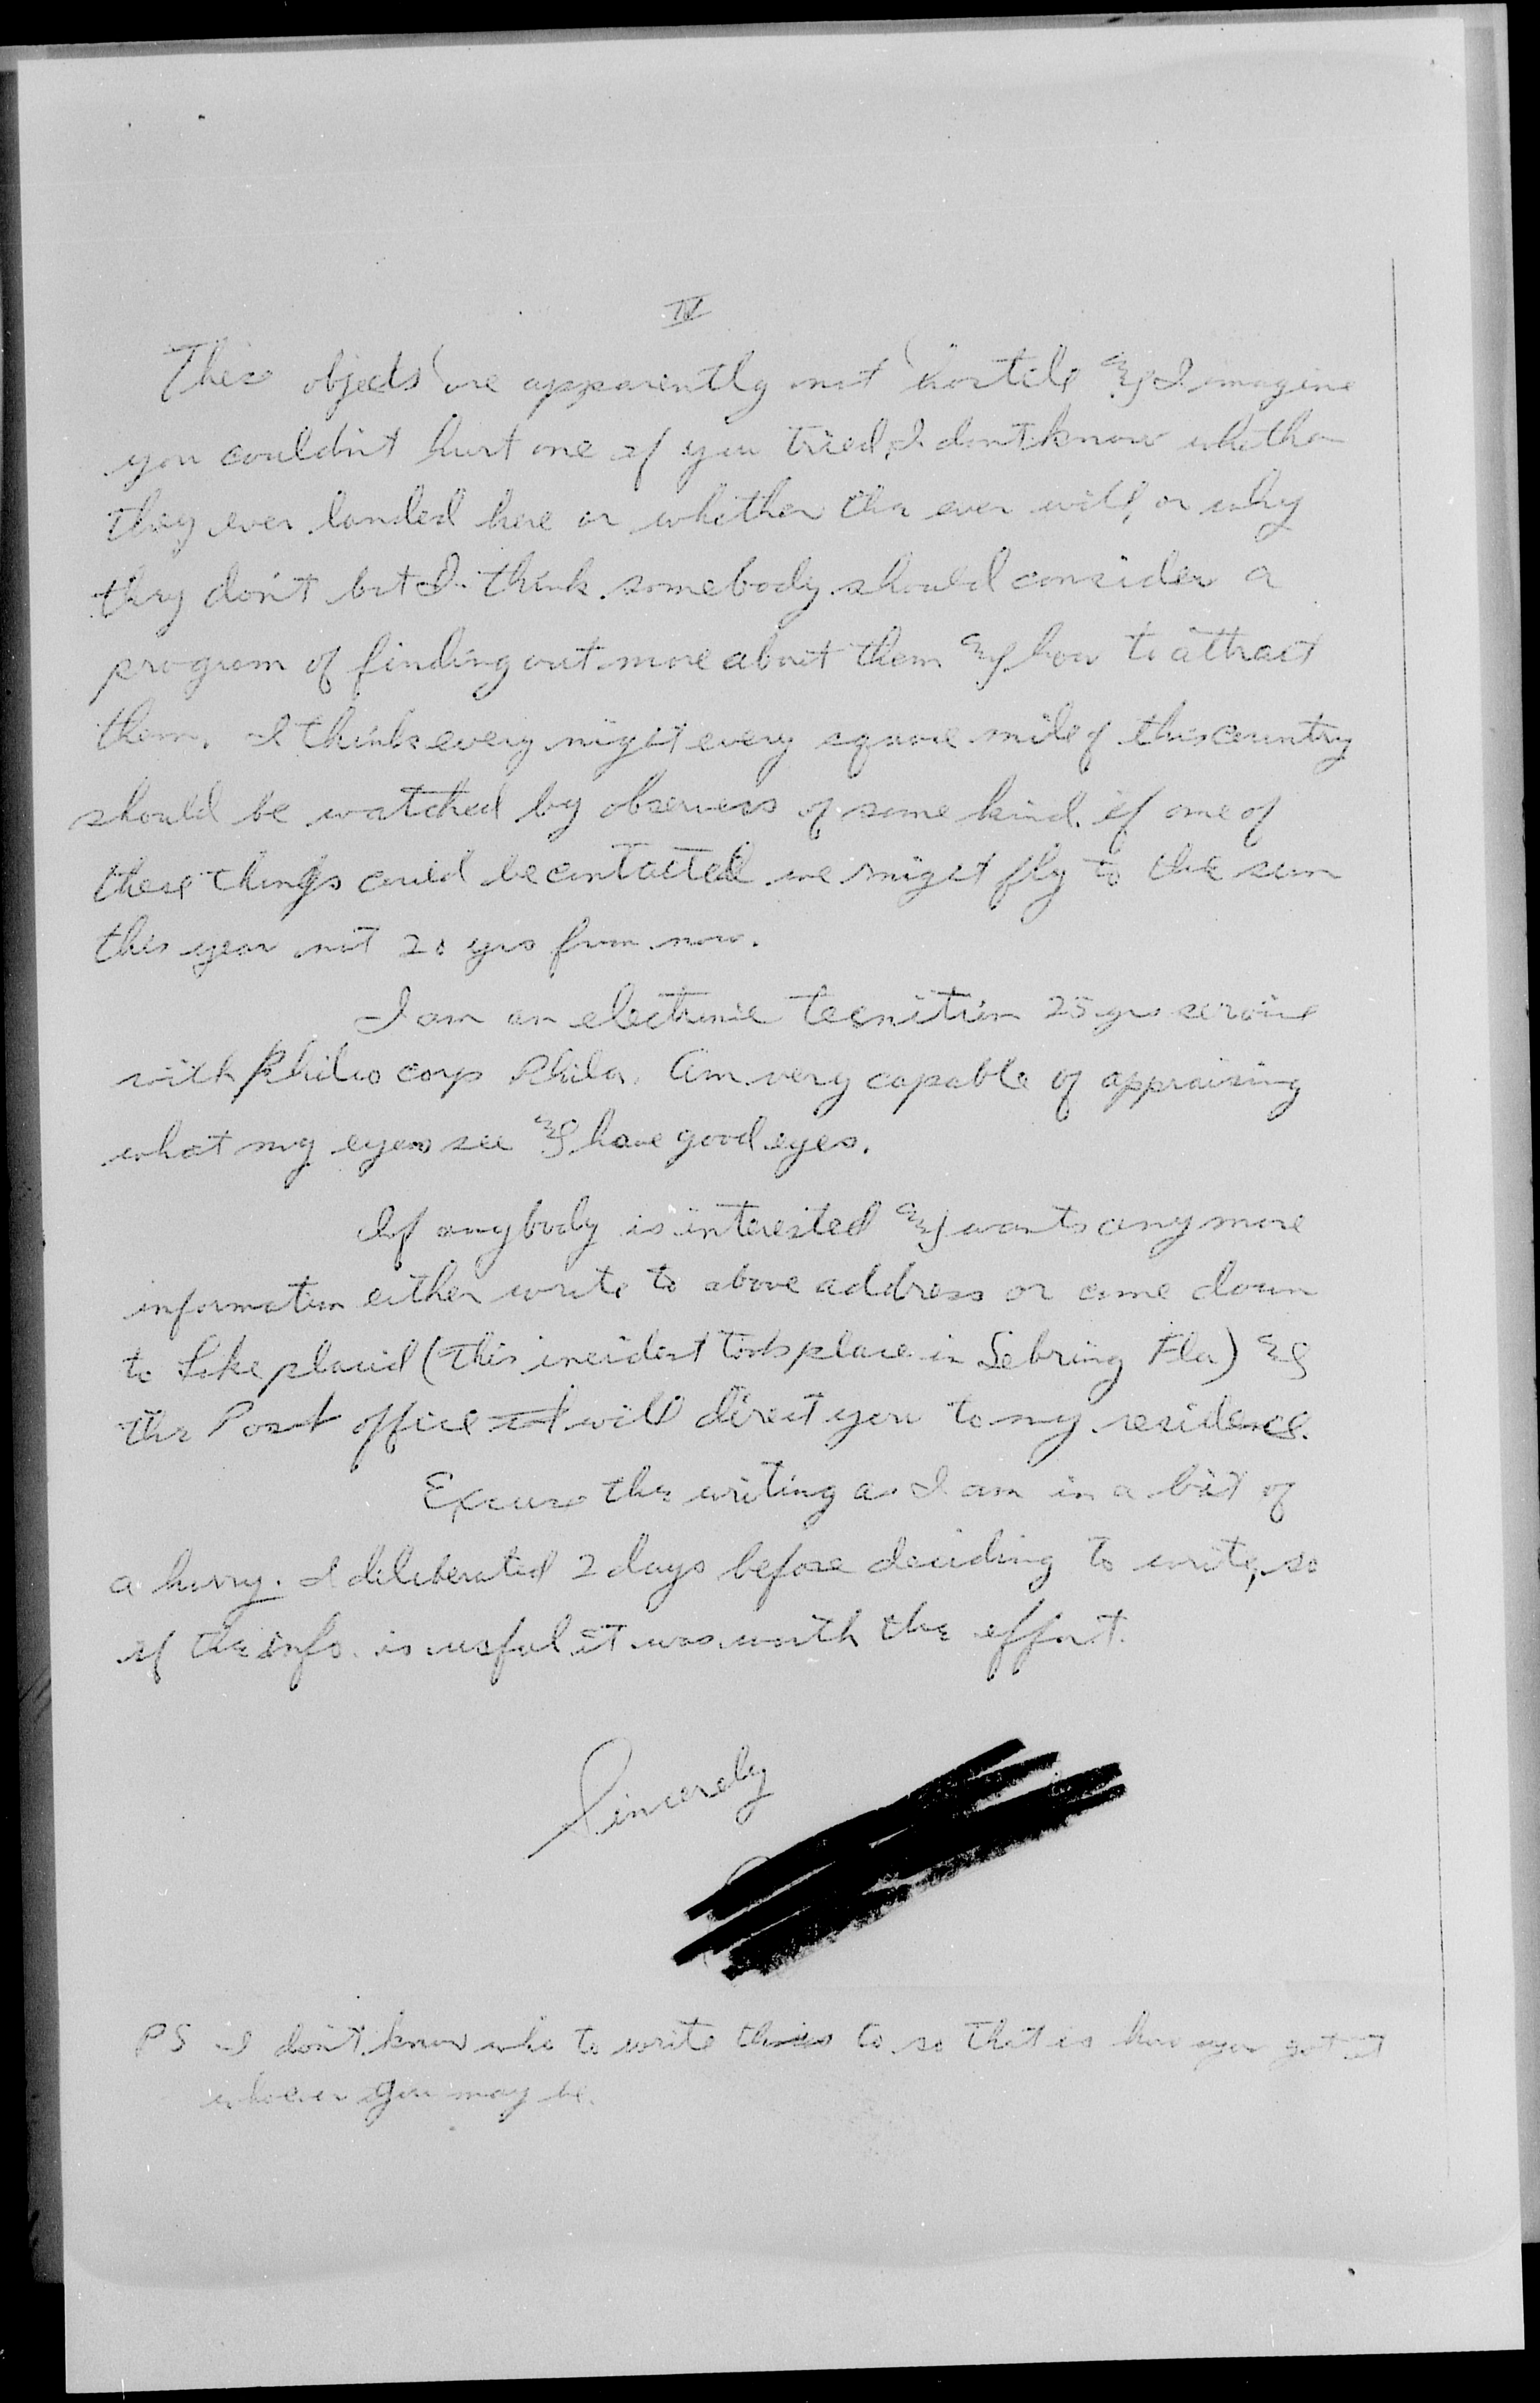 IV
These objects are apparently not hostile & I imagine
you couldn't hurt one if you tried, I dont know whether
they ever landed here or whether the ever will, or why
they don't but I think somebody should consider a
program of finding out more about them & how to attract
them. I think every night every square mile of this country
should be watched by observers of some kind. if one of
these things could be contacted we might fly to the sun
this year not 20 yrs from now.
I am an electronic tecnition 25 yrs service
with Philco corp Phila. Am very capable of appraising
what my eyes see & have good eyes.
If anybody is interested & wants any more
information either write to above address or come down
to Lake placid (This incident took place in Sebring Fla) &
the Post office will direct you to my residence.
Excuse the writing as I am in a bit of
a hurry. I deliberated 2 days before deciding to write, so
if the info. is useful it was worth the effort.
Sincerely
PS I don't know who to write this to so that is how you got it
whoever you may be.